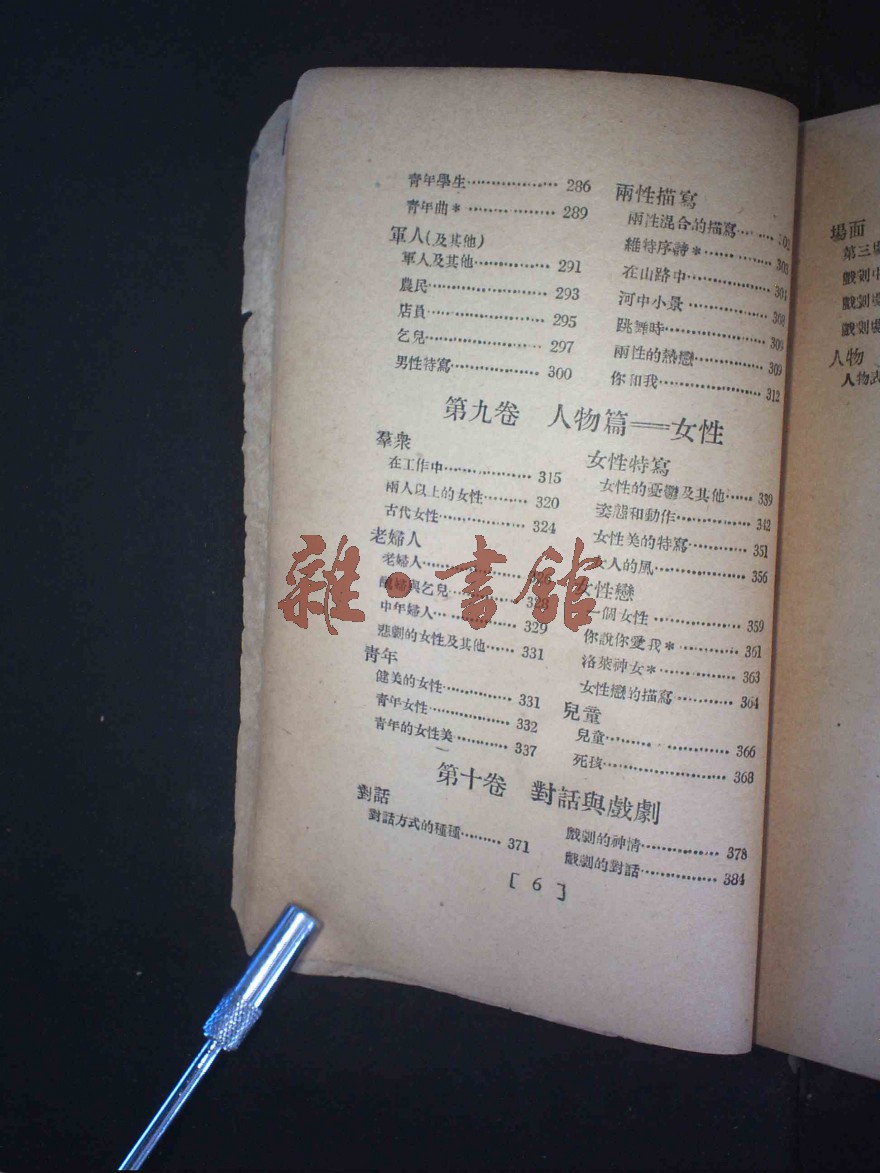 青年學生 286
青年曲* 289
軍人(及其他)
軍人及其他 291
農民 293
店員 295
乞兒 297
男性特寫 300
兩性描寫
兩性混合的描寫
維特序詩* 303
在山路中 304
河中小景 308
跳舞時 309
兩性的熱戀 309
你和我 312
第九卷 人物篇══女性
羣衆
在工作中 315
兩人以上的女性 320
古代女性 324
老婦人
老婦人 326
醜婦與乞兒 328
中年婦人 329
悲劇的女性及其他 331
青年
健美的女性 331
青年女性 332
青年的女性美 337
女性特寫
女性的憂鬱及其他 339
姿態和動作 342
女性美的特寫 351
女人的風 356
女性戀
一個女性 359
你說你愛我* 361
洛萊神女* 363
女性戀的描寫 364
兒童
兒童 366
死孩 368
第十卷 對話與戲劇
對話
對話方式的種種 371
戲劇的神情 378
戲劇的對話 384
[ 6 ]
場面
第三
戲劇
戲劇
戲劇
人物
人物
雜·書館